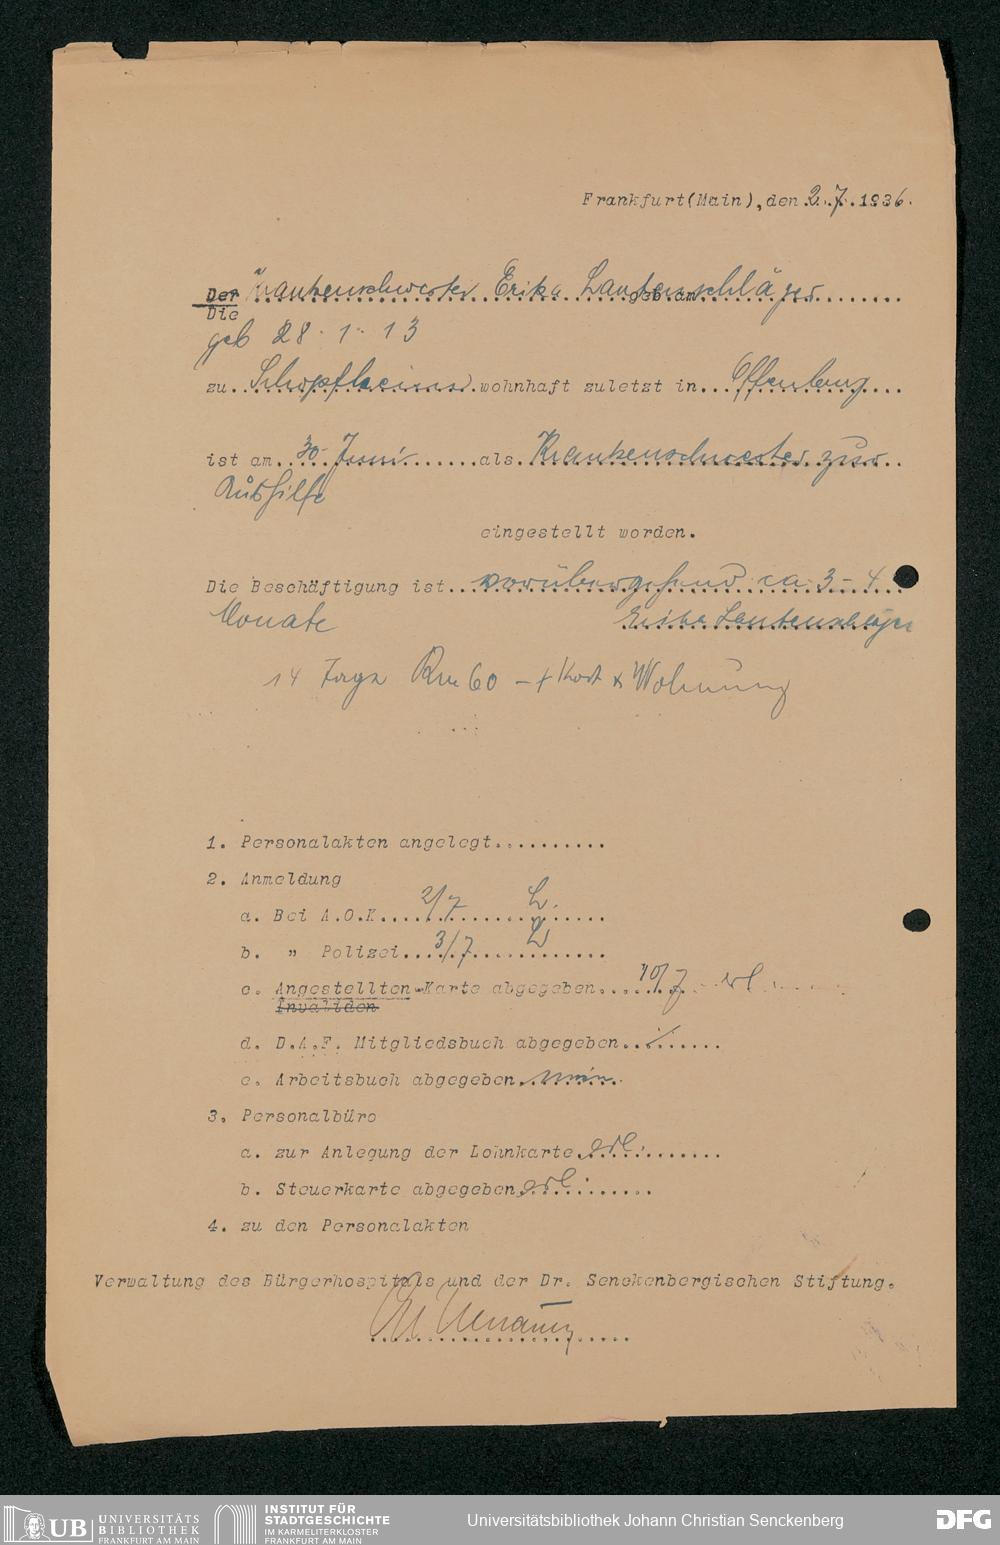 Frankfurt(Main),den 2.7.1936.
Der Krankenschwester Erika Lautenschläger geb am
Die
geb 28.1.13
zu Schopfheim wohnhaft zuletzt in Offenburg
ist am 30 Juni als Krankenschwester zur
Aushilfe
eingestellt worden.
Die Beschäftigung ist vorübergehend ca 3-4
Monate Erika Lautenschläger
14 Tage Rm 60 - + Kost & Wohnung
1. Personalakten angelegt...........
2. Anmeldung
a. Bei A.O.K. 2/7 L.
b. " Polizei 3/7 L
c. Angestellten-Karte abgegeben 10/7 erl
Invaliden
d. D.A.F. Mitgliedsbuch abgegeben
e. Arbeitsbuch abgegeben
3. Personalbüro
a. zur Anlegung der Lohnkarte erl.
b. Steuerkarte abgegeben erl.
4. zu den Personalakten
Verwaltung des Bürgerhospitals und der Dr. Senckenbergischen Stiftung.
UB UNIVERSITÄTS
BIBLIOTHEK
FRANKFURT AM MAIN
INSTITUT FÜR
STADTGESCHICHTE
IM KARMELITERKLOSTER
FRANKFURT AM MAIN
Universitätsbibliothek Johann Christian Senckenberg
DFG